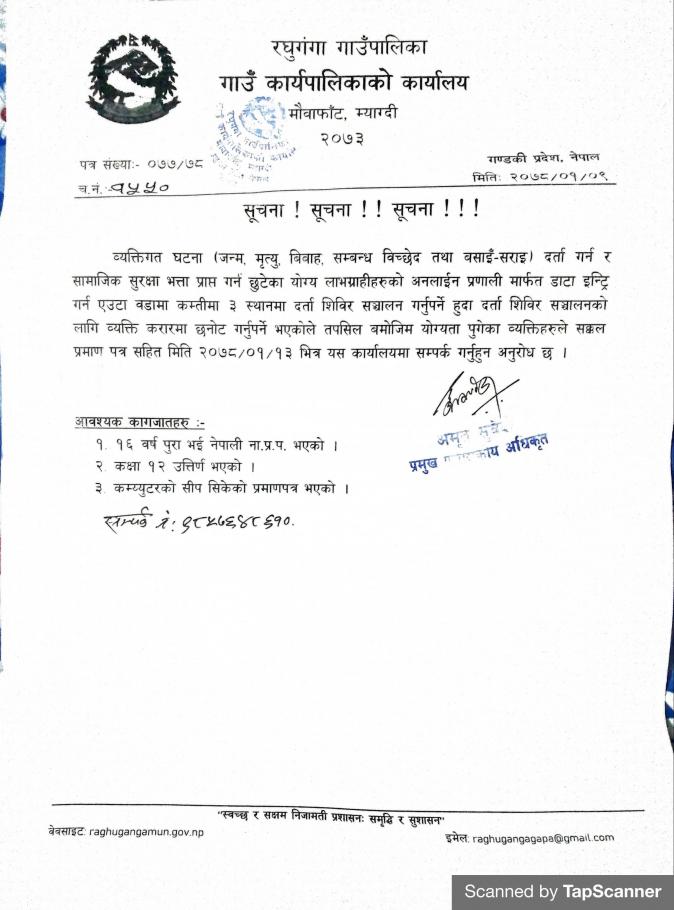 रघुगंगा गाउँपालिका
गाउँ कार्यपालिकाको कार्यालय
मौवाफाँट, म्याग्दी
२०७३
पत्र संख्या:- ०७७/७८
गण्डकी प्रदेश, नेपाल
च.नं. १५५०
मिति: २०७८/०१/०९
सूचना ! सूचना ! ! सूचना ! ! !
व्यक्तिगत घटना (जन्म, मृत्यु, बिवाह, सम्बन्ध विच्छेद तथा बसाइँ-सराइ) दर्ता गर्न र
सामाजिक सुरक्षा भत्ता प्राप्त गर्न छुटेका योग्य लाभग्राहीहरुको अनलाईन प्रणाली मार्फत डाटा इन्ट्रि
गर्न एउटा वडामा कम्तीमा ३ स्थानमा दर्ता शिविर सञ्चालन गर्नुपर्ने हुदा दर्ता शिविर सञ्चालनको
लागि व्यक्ति करारमा छनोट गर्नुपर्ने भएकोले तपसिल बमोजिम योग्यता पुगेका व्यक्तिहरुले सक्कल
प्रमाण पत्र सहित मिति २०७८/०१/१३ भित्र यस कार्यालयमा सम्पर्क गर्नुहुन अनुरोध छ ।
आवश्यक कागजातहरु :-
१. १६ वर्ष पुरा भई नेपाली ना.प्र.प. भएको ।
२. कक्षा १२ उत्तिर्ण भएको ।
३. कम्प्युटरको सीप सिकेको प्रमाणपत्र भएको ।
अमृत
प्रमुख अधिकृत
सम्पर्क नं: ९८५७६४८६१०.
"स्वच्छ र सक्षम निजामती प्रशासनः समृद्धि र सुशासन"
वेबसाइट: raghugangamun.gov.np
इमेल: raghugangagapa@gmail.com
Scanned by TapScanner